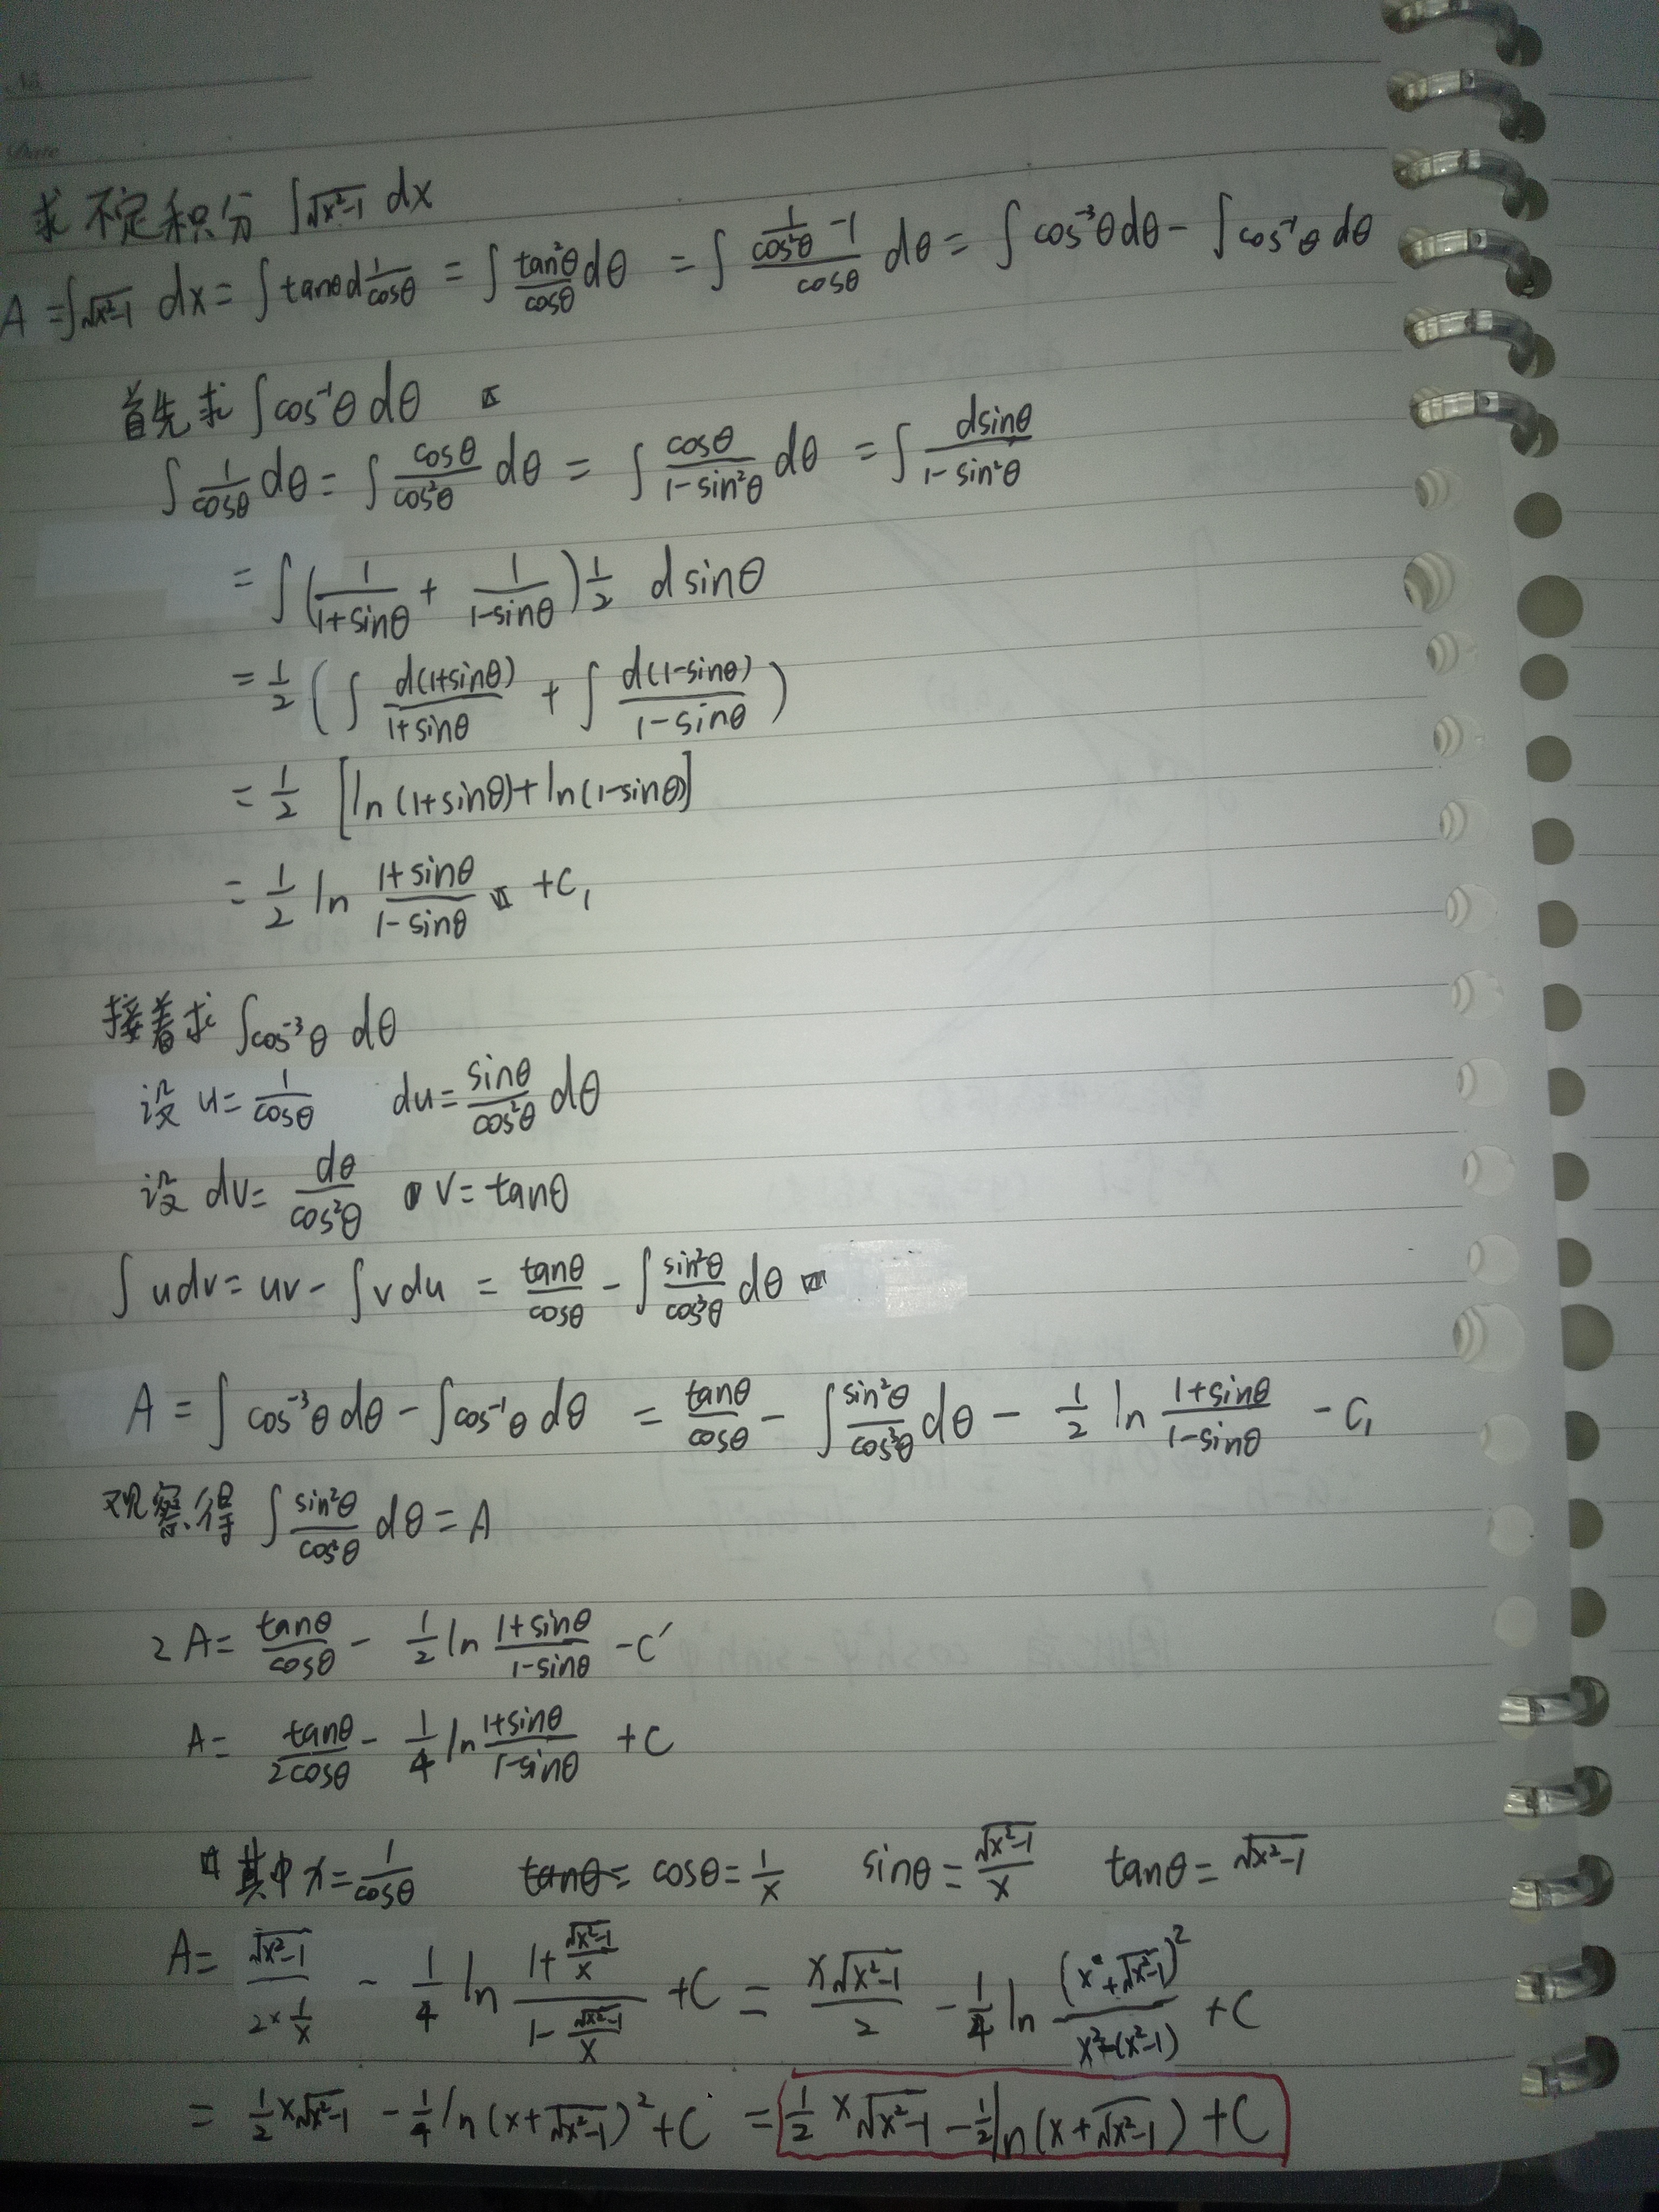 No.
Date
求不定积分 ∫√(x²-1) dx
A = ∫√(x²-1) dx = ∫ tanθ d 1/cosθ = ∫ tan²θ/cosθ dθ = ∫ (1/cos²θ - 1)/cosθ dθ = ∫ cos⁻³θ dθ - ∫ cos⁻¹θ dθ
首先求 ∫ cos⁻¹θ dθ
∫ 1/cosθ dθ = ∫ cosθ/cos²θ dθ = ∫ cosθ/(1-sin²θ) dθ = ∫ dsinθ/(1-sin²θ)
= ∫ (1/(1+sinθ) + 1/(1-sinθ)) 1/2 d sinθ
= 1/2 (∫ d(1+sinθ)/(1+sinθ) + ∫ d(1-sinθ)/(1-sinθ))
= 1/2 [ln(1+sinθ) + ln(1-sinθ)]
= 1/2 ln (1+sinθ)/(1-sinθ) + C₁
接着求 ∫cos⁻³θ dθ
设 u = 1/cosθ du = sinθ/cos²θ dθ
设 dv = dθ/cos²θ v = tanθ
∫ u dv = uv - ∫ v du = tanθ/cosθ - ∫ sin²θ/cos³θ dθ
A = ∫ cos⁻³θ dθ - ∫cos⁻¹θ dθ = tanθ/cosθ - ∫ sin²θ/cos³θ dθ - 1/2 ln (1+sinθ)/(1-sinθ) - C₁
观察得 ∫ sin²θ/cos³θ dθ = A
2A = tanθ/cosθ - 1/2 ln (1+sinθ)/(1-sinθ) - C′
A = tanθ/2cosθ - 1/4 ln (1+sinθ)/(1-sinθ) + C
其中 x = 1/cosθ tanθ= cosθ = 1/x sinθ = √(x²-1)/x tanθ = √(x²-1)
A = √(x²-1)/(2×1/x) - 1/4 ln (1+√(x²-1)/x)/(1-√(x²-1)/x) + C = x√(x²-1)/2 - 1/4 ln (x+√(x²-1))²/(x²-(x²-1)) + C
= 1/2 x√(x²-1) - 1/4 ln(x+√(x²-1))² + C = 1/2 x√(x²-1) - 1/2 ln(x+√(x²-1)) + C